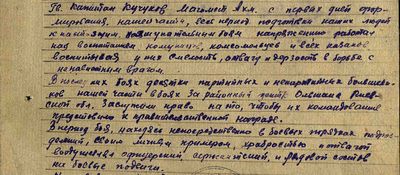 Гв. капитан Кучуков Магомет Ахм. с первых дней фор-
мирования, нашей части, весь период подготовки наших людей
к наступательным боям напряженно работал
над воспитанием, коммунистов, комсомольцев и всех казаков
воспитывая у них смелость, отвагу и дерзость в борьбе с
ненавистным врагом.
В последних боях десятки партийных и непартийных большеви-
ков нашей части в боях за районный центр Ольшана Киев-
ской обл. Заслужили право на то, чтобы их командование
представило к правительственной награде.
В период боя, находясь непосредственно в боевых порядках подраз-
делений, своим личным примером, храбростью и отвагой
воодушевлял офицерский, сержантский, и рядовой состав
на боевые подвиги.